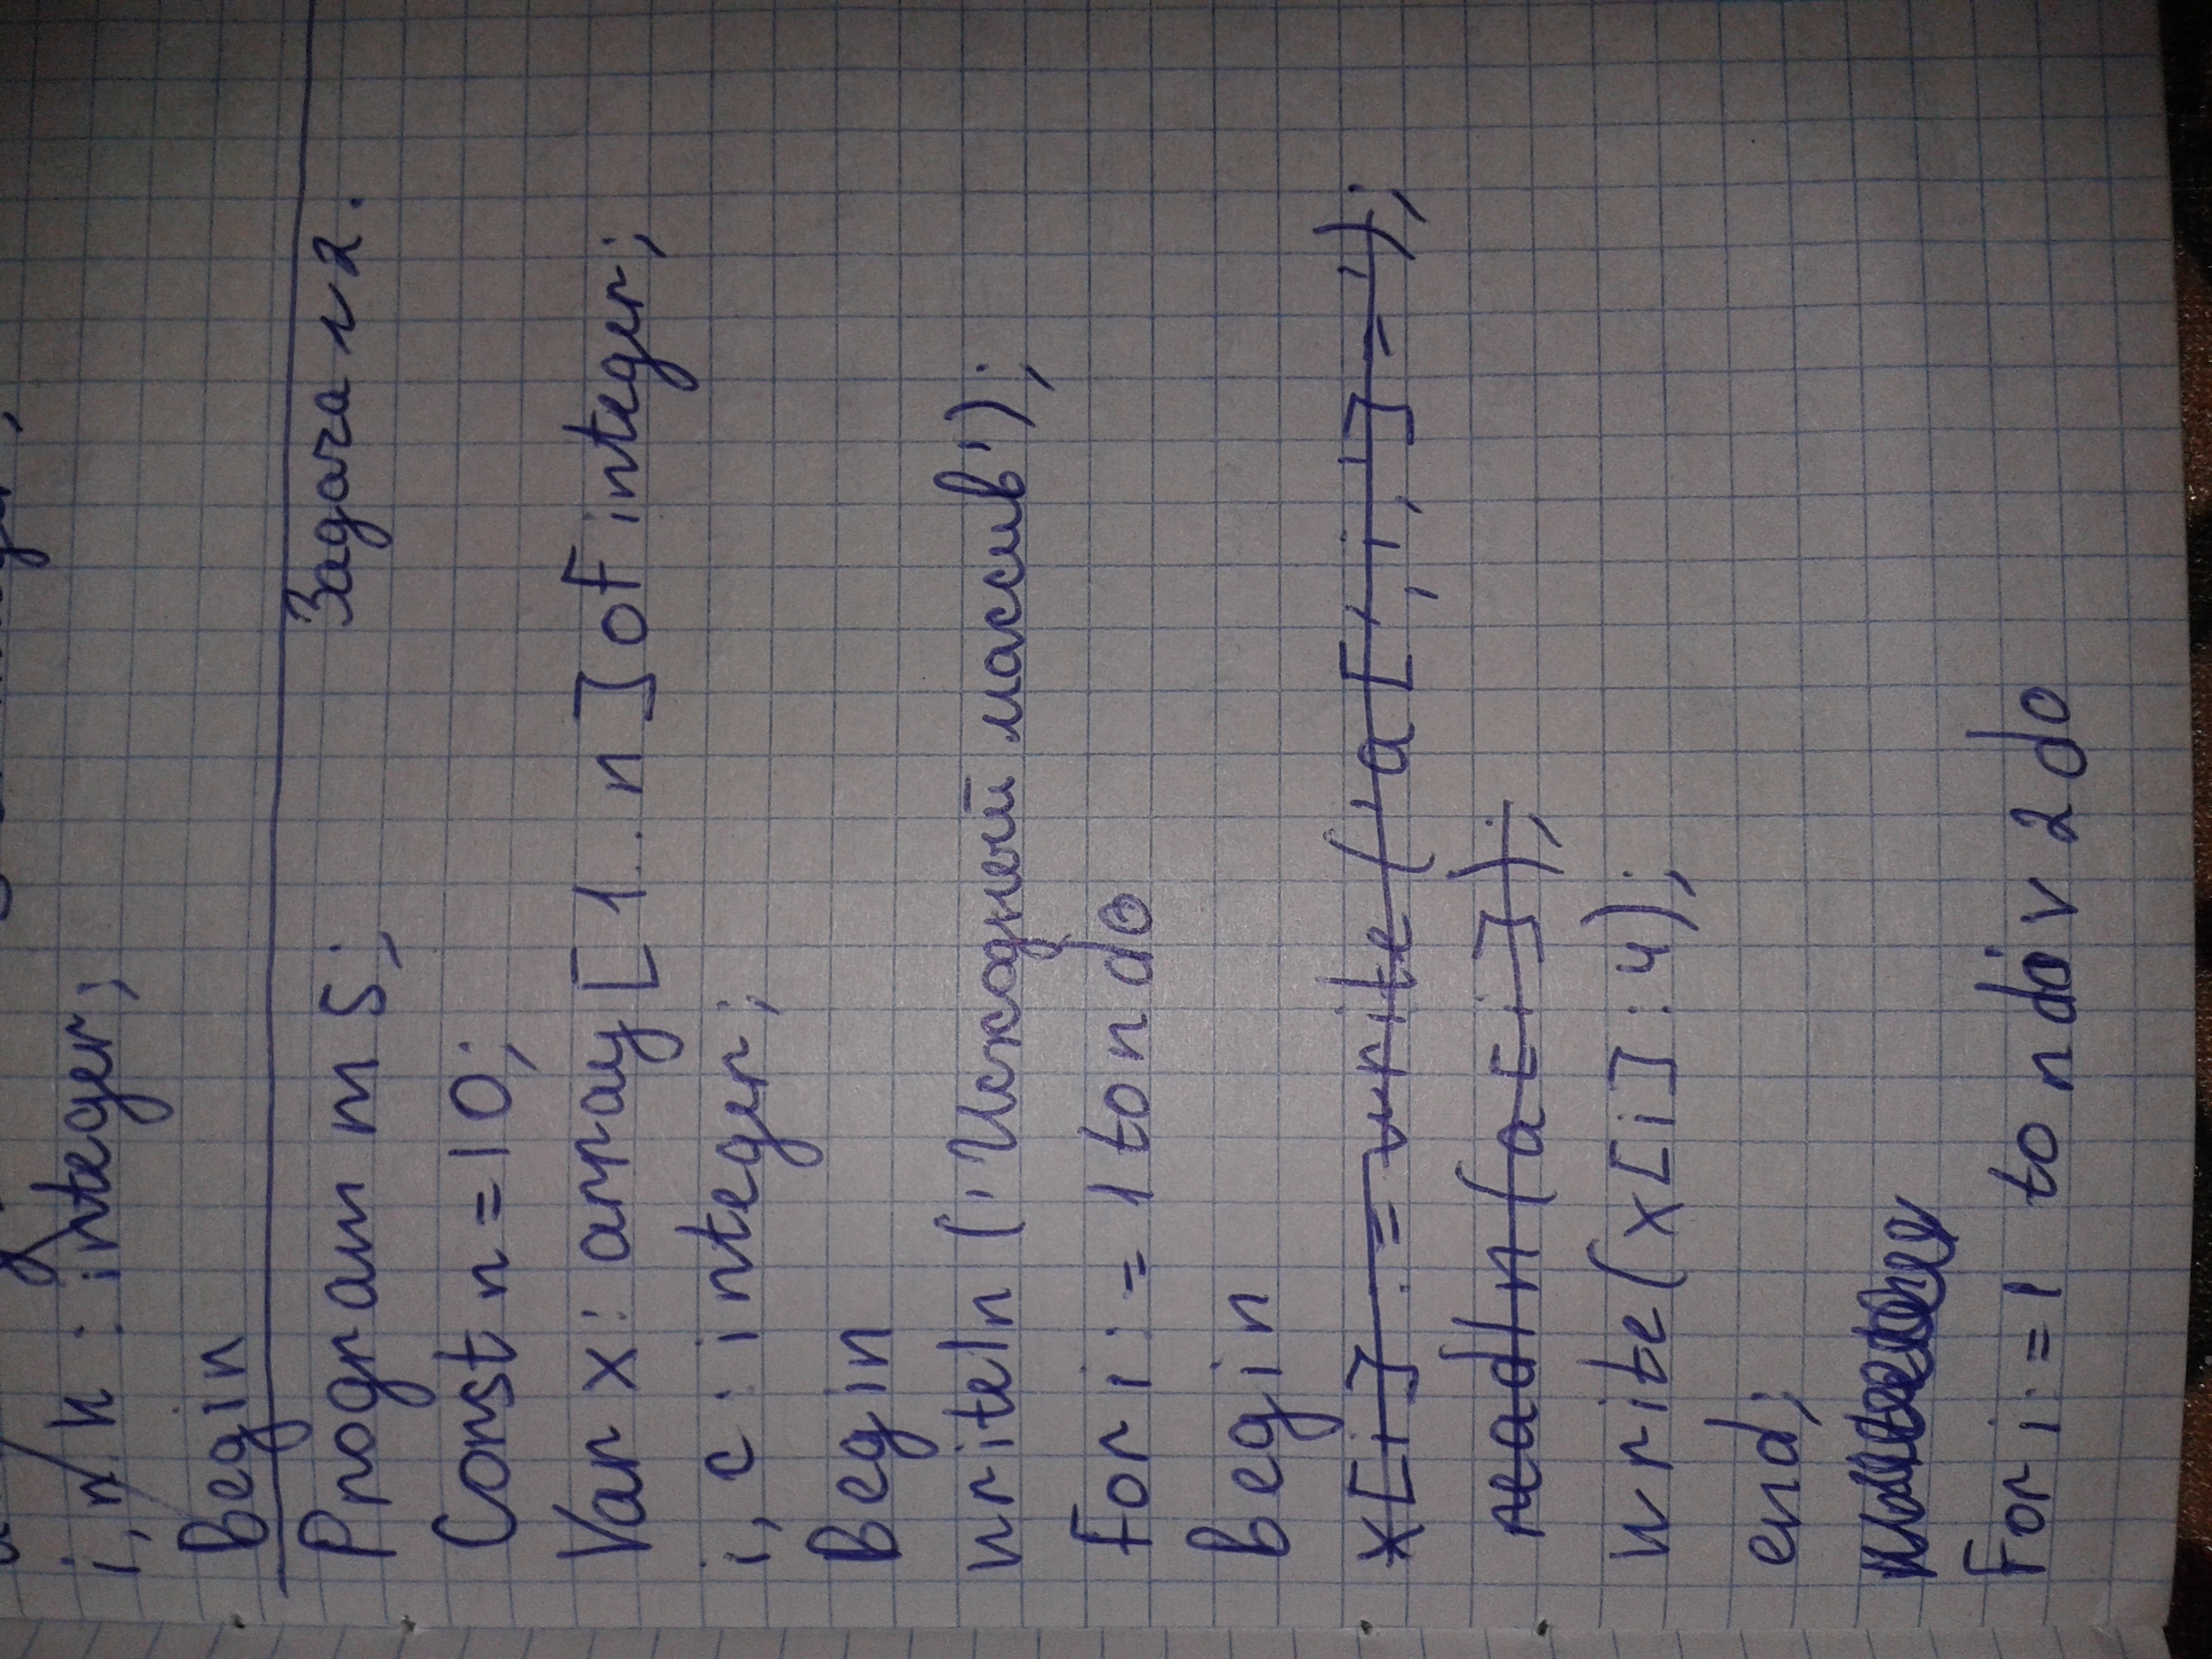 i, n, k : integer;
Begin
Задача n2.
Program m5;
Const n = 10;
Var x: array [1..n] of integer;
i, c : integer;
Begin
writeln ('Исходный массив');
For i := 1 to n do
Begin
x[i] := write ('a[', i, ']=');
readln (a[i]);
write (x[i] : 4);
end;
For i := 1 to n div 2 do